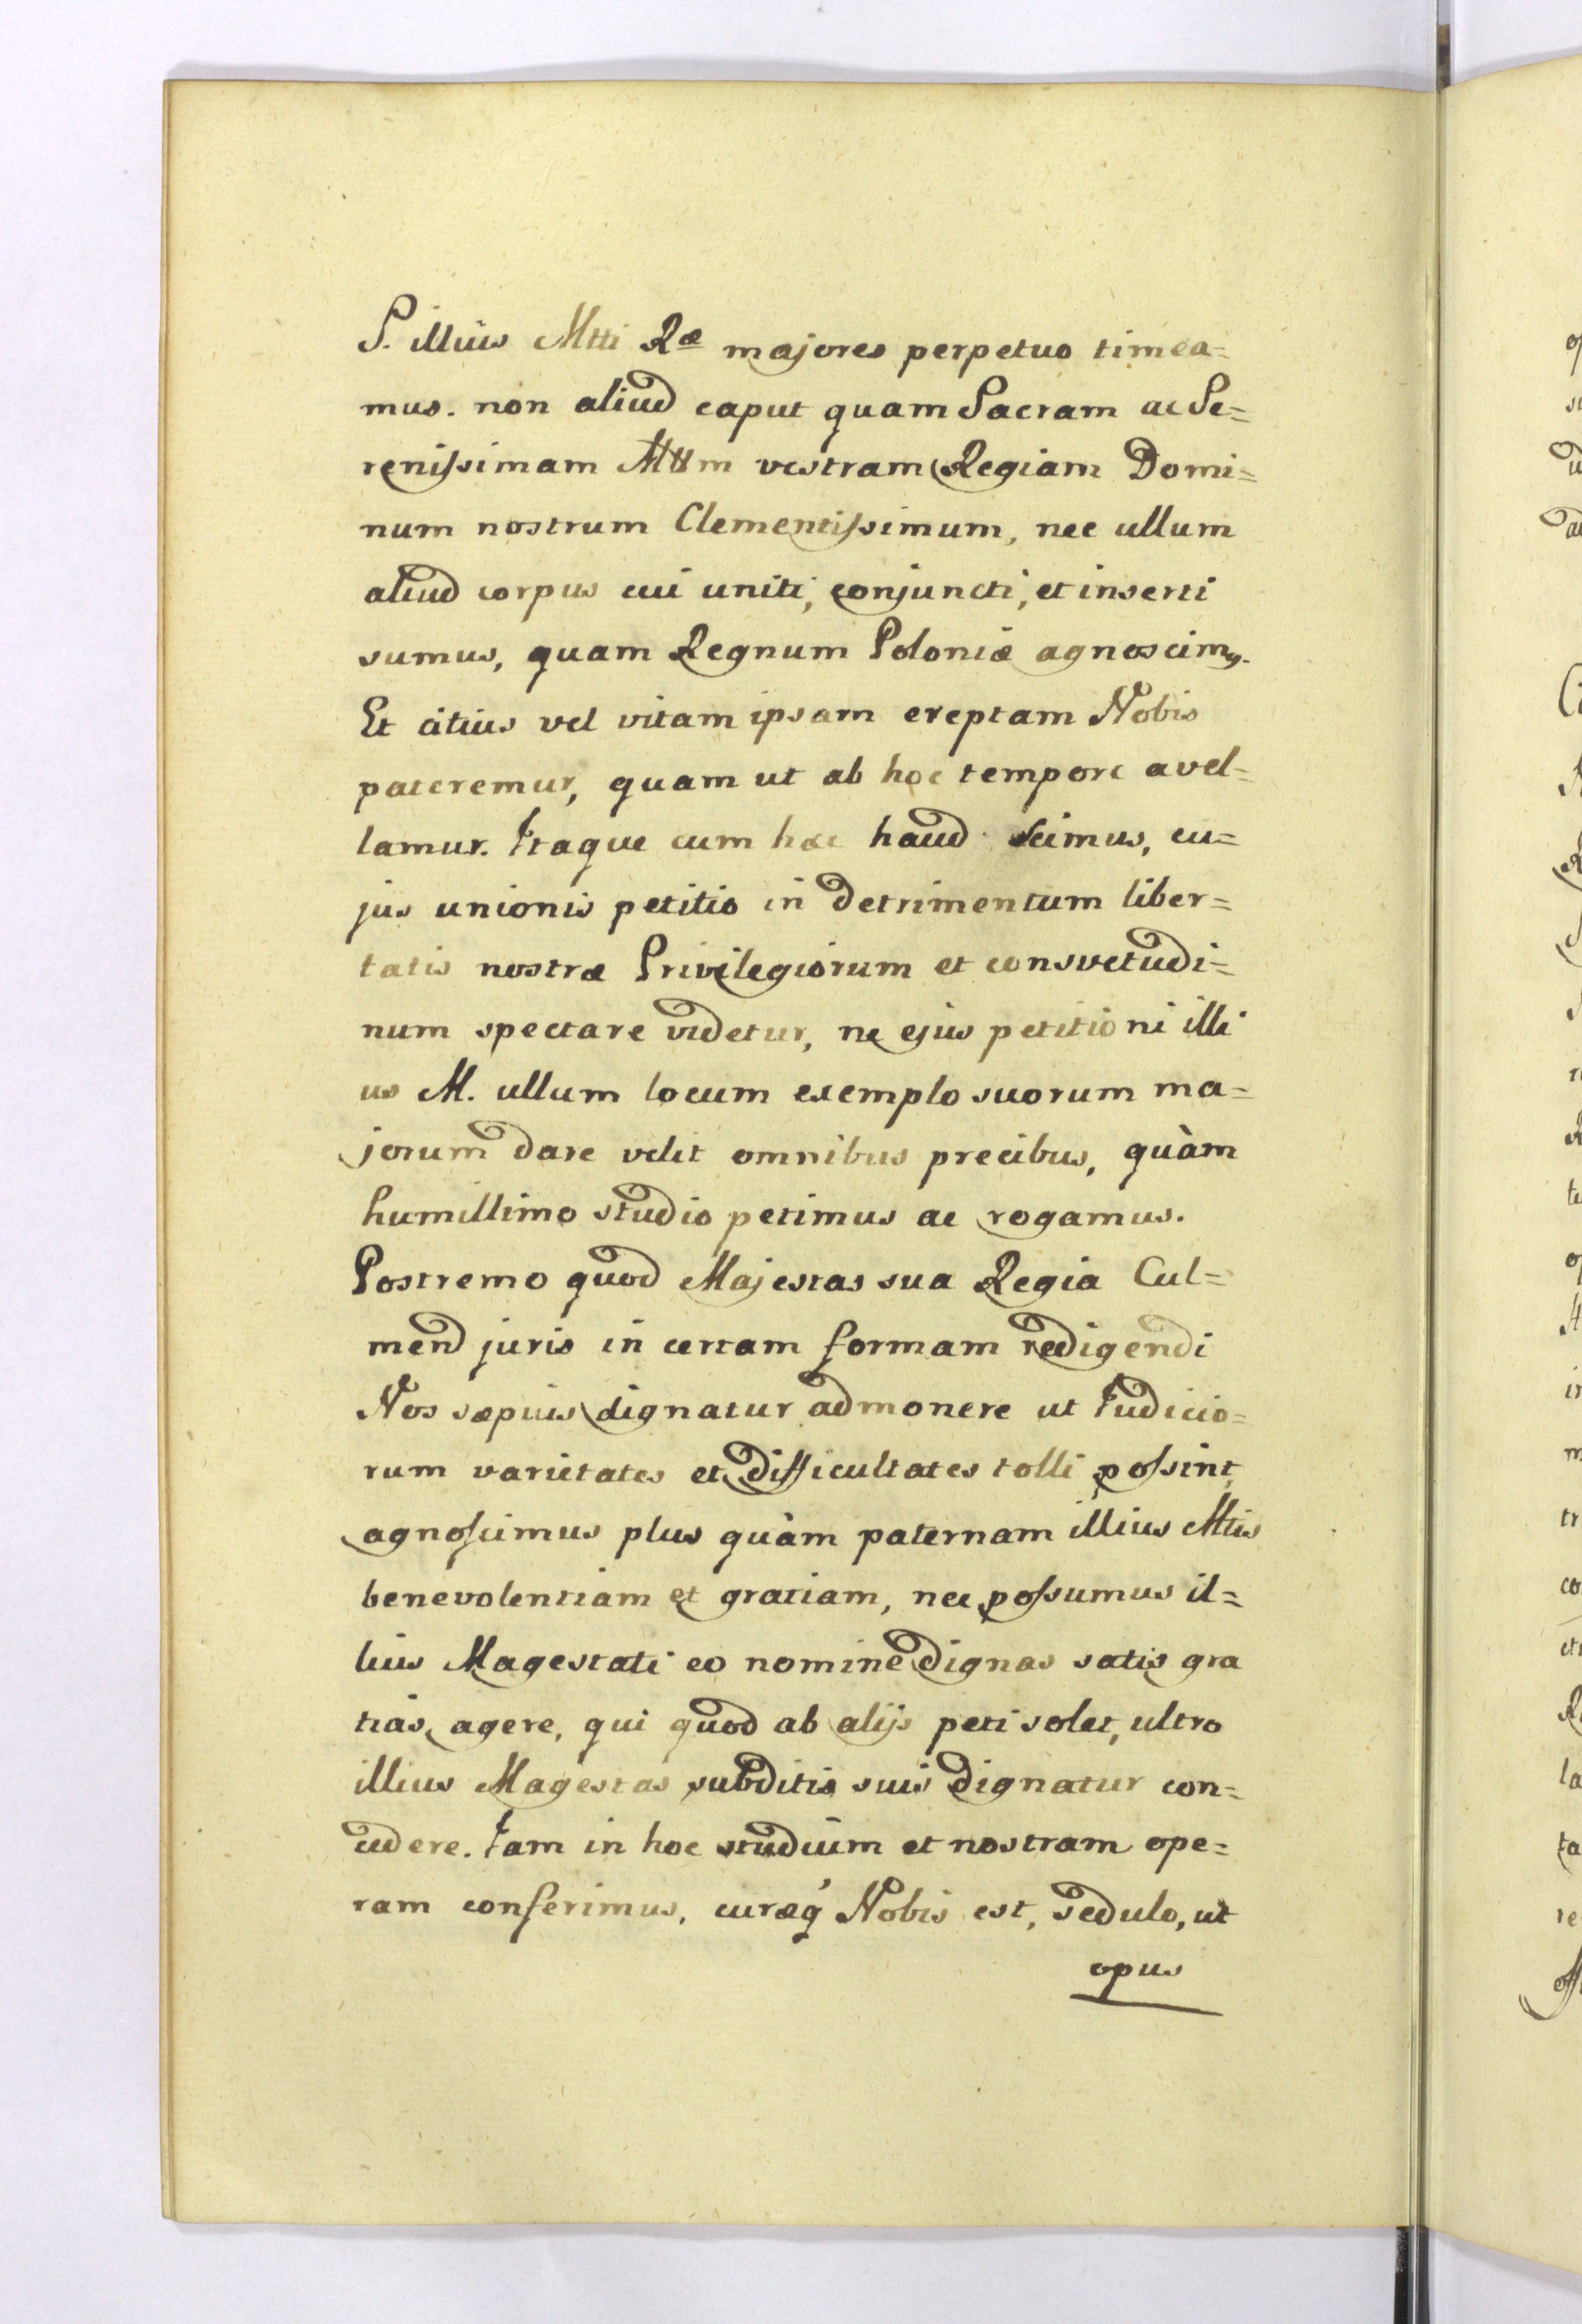 S. illius Mtti Ræ majores perpetuo timea=
mus. non aliud caput quam Sacram ac Se=
renissimam Mttm vestram Regiam Domi=
num nostrum Clementissimum, nec ullum
aliud corpus cui uniti, conjuncti, et inserti
sumus, quam Regnum Poloniæ agnoscimq.
Et citius vel vitam ipsam ereptam Nobis
pateremur, quam ut ab hoc tempore avel=
lamur. Itaque cum hæc haud scimus, cu=
jus unionis petitio in detrimentum liber=
tatis nostræ Privilegiorum et consvetudi=
num spectare videtur, ne ejus petitioni illi
us M. ullum locum exemplo suorum ma=
jorum dare velit omnibus precibus, quàm
humillimo studio petimus ac rogamus.
Postremo quod Majestas sua Regia Cul=
mend juris in certam formam redigendi
Nos sæpius dignatur admonere ut Judicio=
rum varietates et difficultates tolli possint,
agnoscimus plus quàm paternam illius Mtis
benevolentiam et gratiam, nec possumus il=
lius Magestati eo nomine dignas satis gra
tias agere, qui quod ab alijs peti solet, ultro
illius Magestas subditis suis dignatur con=
cedere. Jam in hoc studium et nostram ope=
ram conferimus, curæq' Nobis est, sedulo, ut
opus